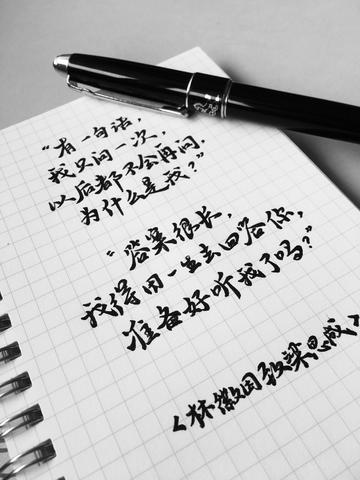 “有一句话，
我只问一次，
以后都不会再问，
为什么是我？”
“答案很长，
我得用一生去回答你，
准备好听我了吗？”
《林徽因致梁思成》